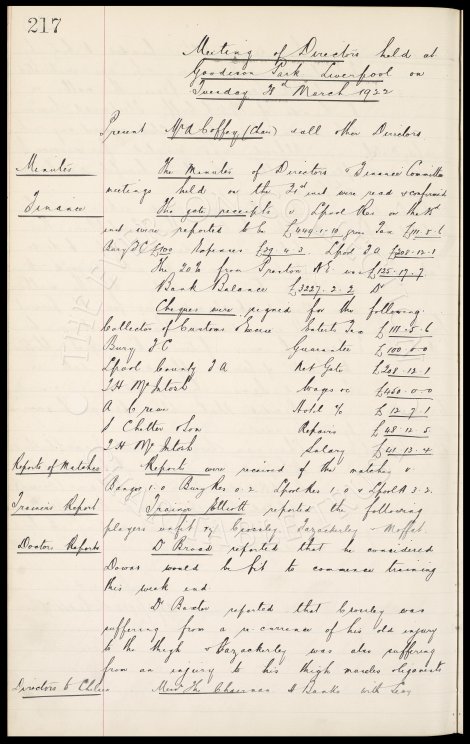 217
Meeting of Directors held at
Goodison Park Liverpool on
Tuesday March 1922
Present Mr A Coffey (Chair) & all other Directors
Minutes The Minutes of Directors & Finance Committee
meetings held on the 21st inst were read & confirmed
Finance The gate receipts v Lpool Res on the
inst were reported to be £449.1.10 gross Tax £111.5.6
Bury F.C £100 Expenses £29.4.3 Lpool F.A £208.12.1
The 20% from Preston N.E. was £125.17.7
Bank Balance £3227.2.2 Dr
Cheques were signed for the following.
Collector of Customs & Excise Entert. Tax £111.5.6
Bury F C Guarantee £100.0.0
Lpool County F A Net Gate £208.12.1
T.H. McIntosh Wages &c £460.0.0
A Crewe Hotel £12.7.1
J Chetter & Son Repairs £48.12.5
T H McIntosh Salary £41.13.4
Reports of Matches Reports were received of the matches v
Bangor 1.0 Bury Res 0.2 Lpool Res 1.0 & Lpool A 3.2.
Trainers Report Trainer Elliott reported the following
players unfit, viz Crossley Fazackerley & Moffat
Doctors Reports Dr Broad reported that he considered
Downs would be fit to commence training
this week end
Dr Baxter reported that Crossley was
suffering from a re-currence of his old injury
to the thigh & Fazackerley was also suffering
from an injury to his thigh muscles
Directors to Chelsea The Chairman & Banks with